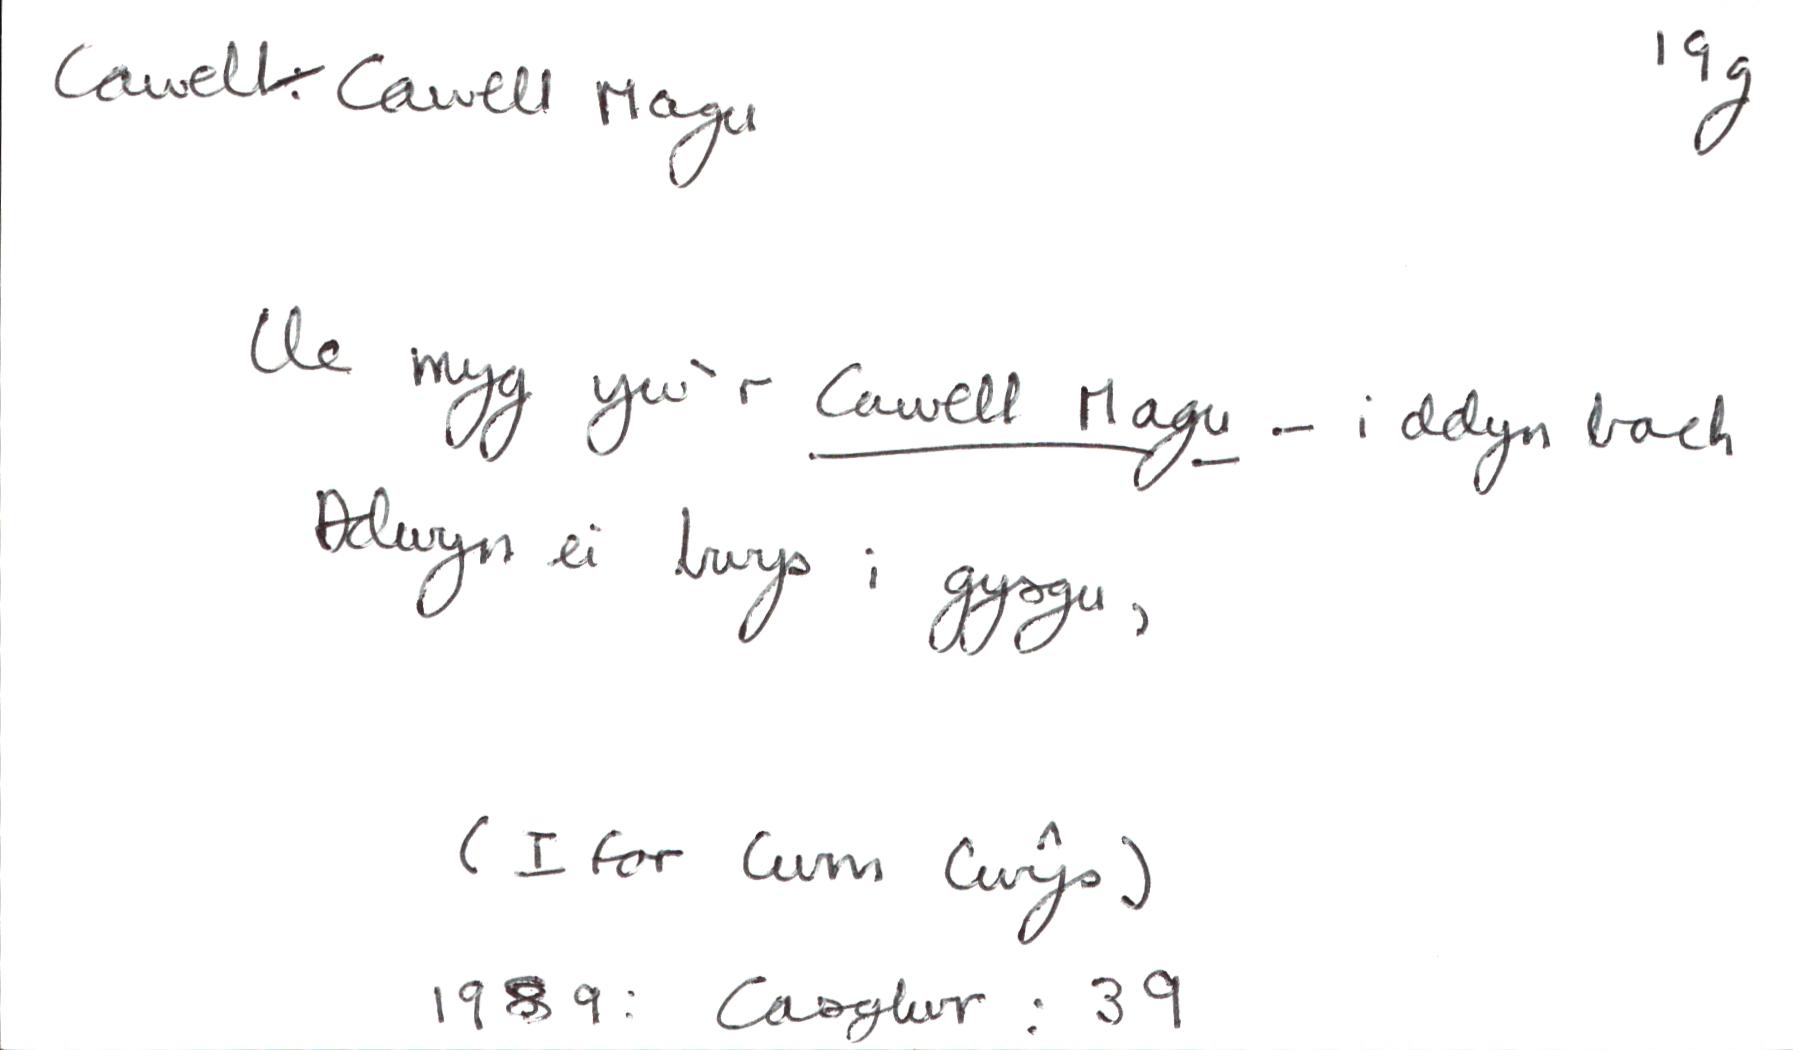 Cawell: Cawell Magu 19g
Lle myg yw'r Cawell Magu - i ddyn bach
Adwyn ei bwys i gysgu,
(Ifor Cwm Cwŷs)
1989: Casglwr: 39